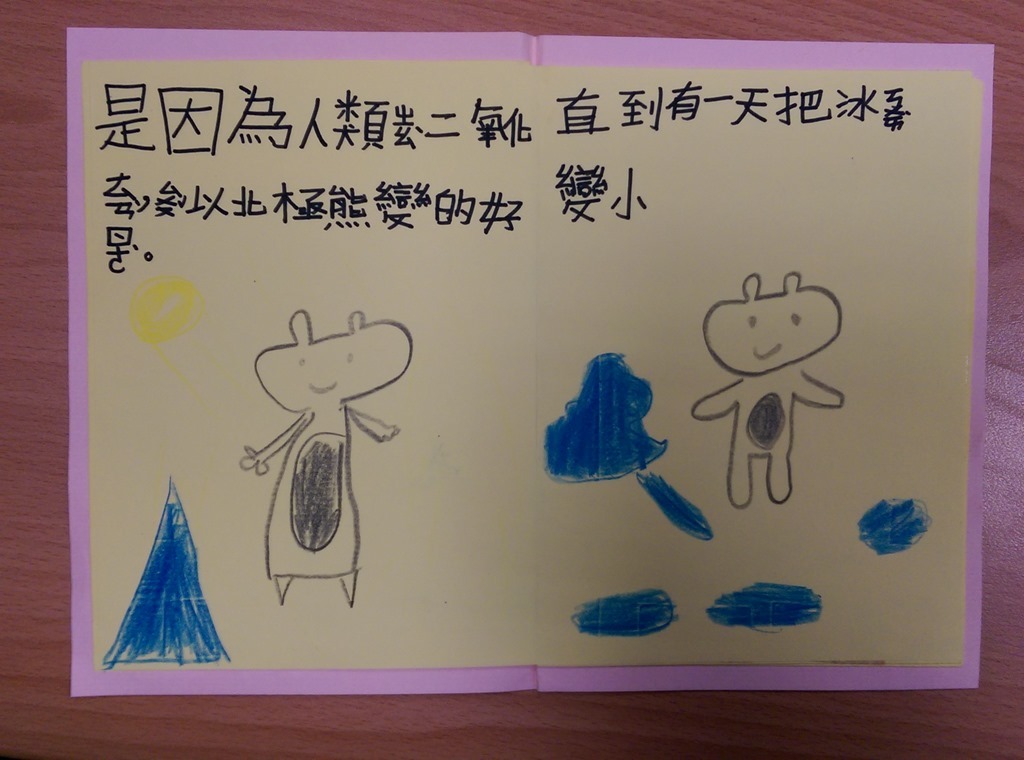 是因為人類二氧化
以北極熊變的好
直到有一天把冰
變小